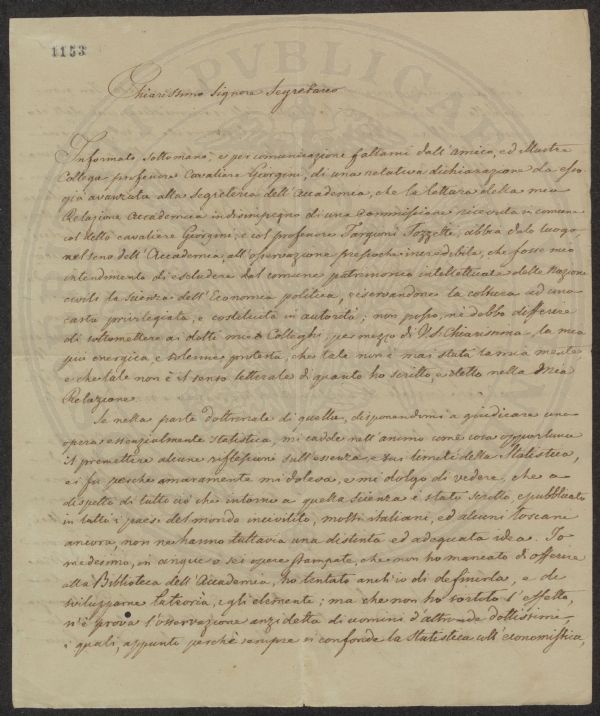 1153
Chiarissimo Signore Segretario
Informato sottomano, e per comunicazione fattami dall'amico, ed Illustre
Collega professore Cavaliere Giorgini, di una relativa dichiarazione da esso
già avanzata alla Segreteria dell'Accademia, che la lettura della mia
Relazione Accademica in disimpegno di una commissione ricevuta in comune
col detto cavaliere Giorgini, e col professore Targioni Tozzetti, abbia dato luogo,
nel seno dell'Accademia all'osservazione pressochè incredibile, che fosse mio
intendimento di escludere dal comune patrimonio intellettuale delle Nazioni
civili la scienza dell'Economia politica, riservandone la coltura ad una
casta privilegiata, e costituita in autorità; non posso, nè debbo differire
di sottomettere ai dotti miei Colleghi, per mezzo di V.S. Chiarissima, la mia
più energica e solenne protesta, che tale non è mai stata la mia mente
e che tale non è il senso letterale di quanto ho scritto, e detto nella mia
Relazione.
Se nella parte dottrinale di quella, disponendomi a giudicare una
opera essenzialmente statistica, mi cadde nell'animo come cosa opportuna
il premettere alcune riflessioni sull'essenza, e sui limiti della Statistica,
ei fu perchè amaramente mi doleva, e mi dolgo di vedere, che a
dispetto di tutto ciò che intorno a quella scienza è stato scritto, e pubblicato
in tutti i paesi del mondo incivilito, molti italiani, ed alcuni toscani
ancora, non ne hanno tuttavia una distinta ed adeguata idea. Io
medesimo, in cinque o sei opere stampate, che non ho mancato di offerire
alla Biblioteca dell'Accademia, ho tentato anch'io di definirla, e di
svilupparne la teoria, e gli elementi; ma che non ho sortito l'effetto,
n'è prova l'osservazione anzidetta di uomini d'altronde dottissimi,
i quali, appunto perchè sempre si confonde la Statistica coll'economistica,
PVBLICAE